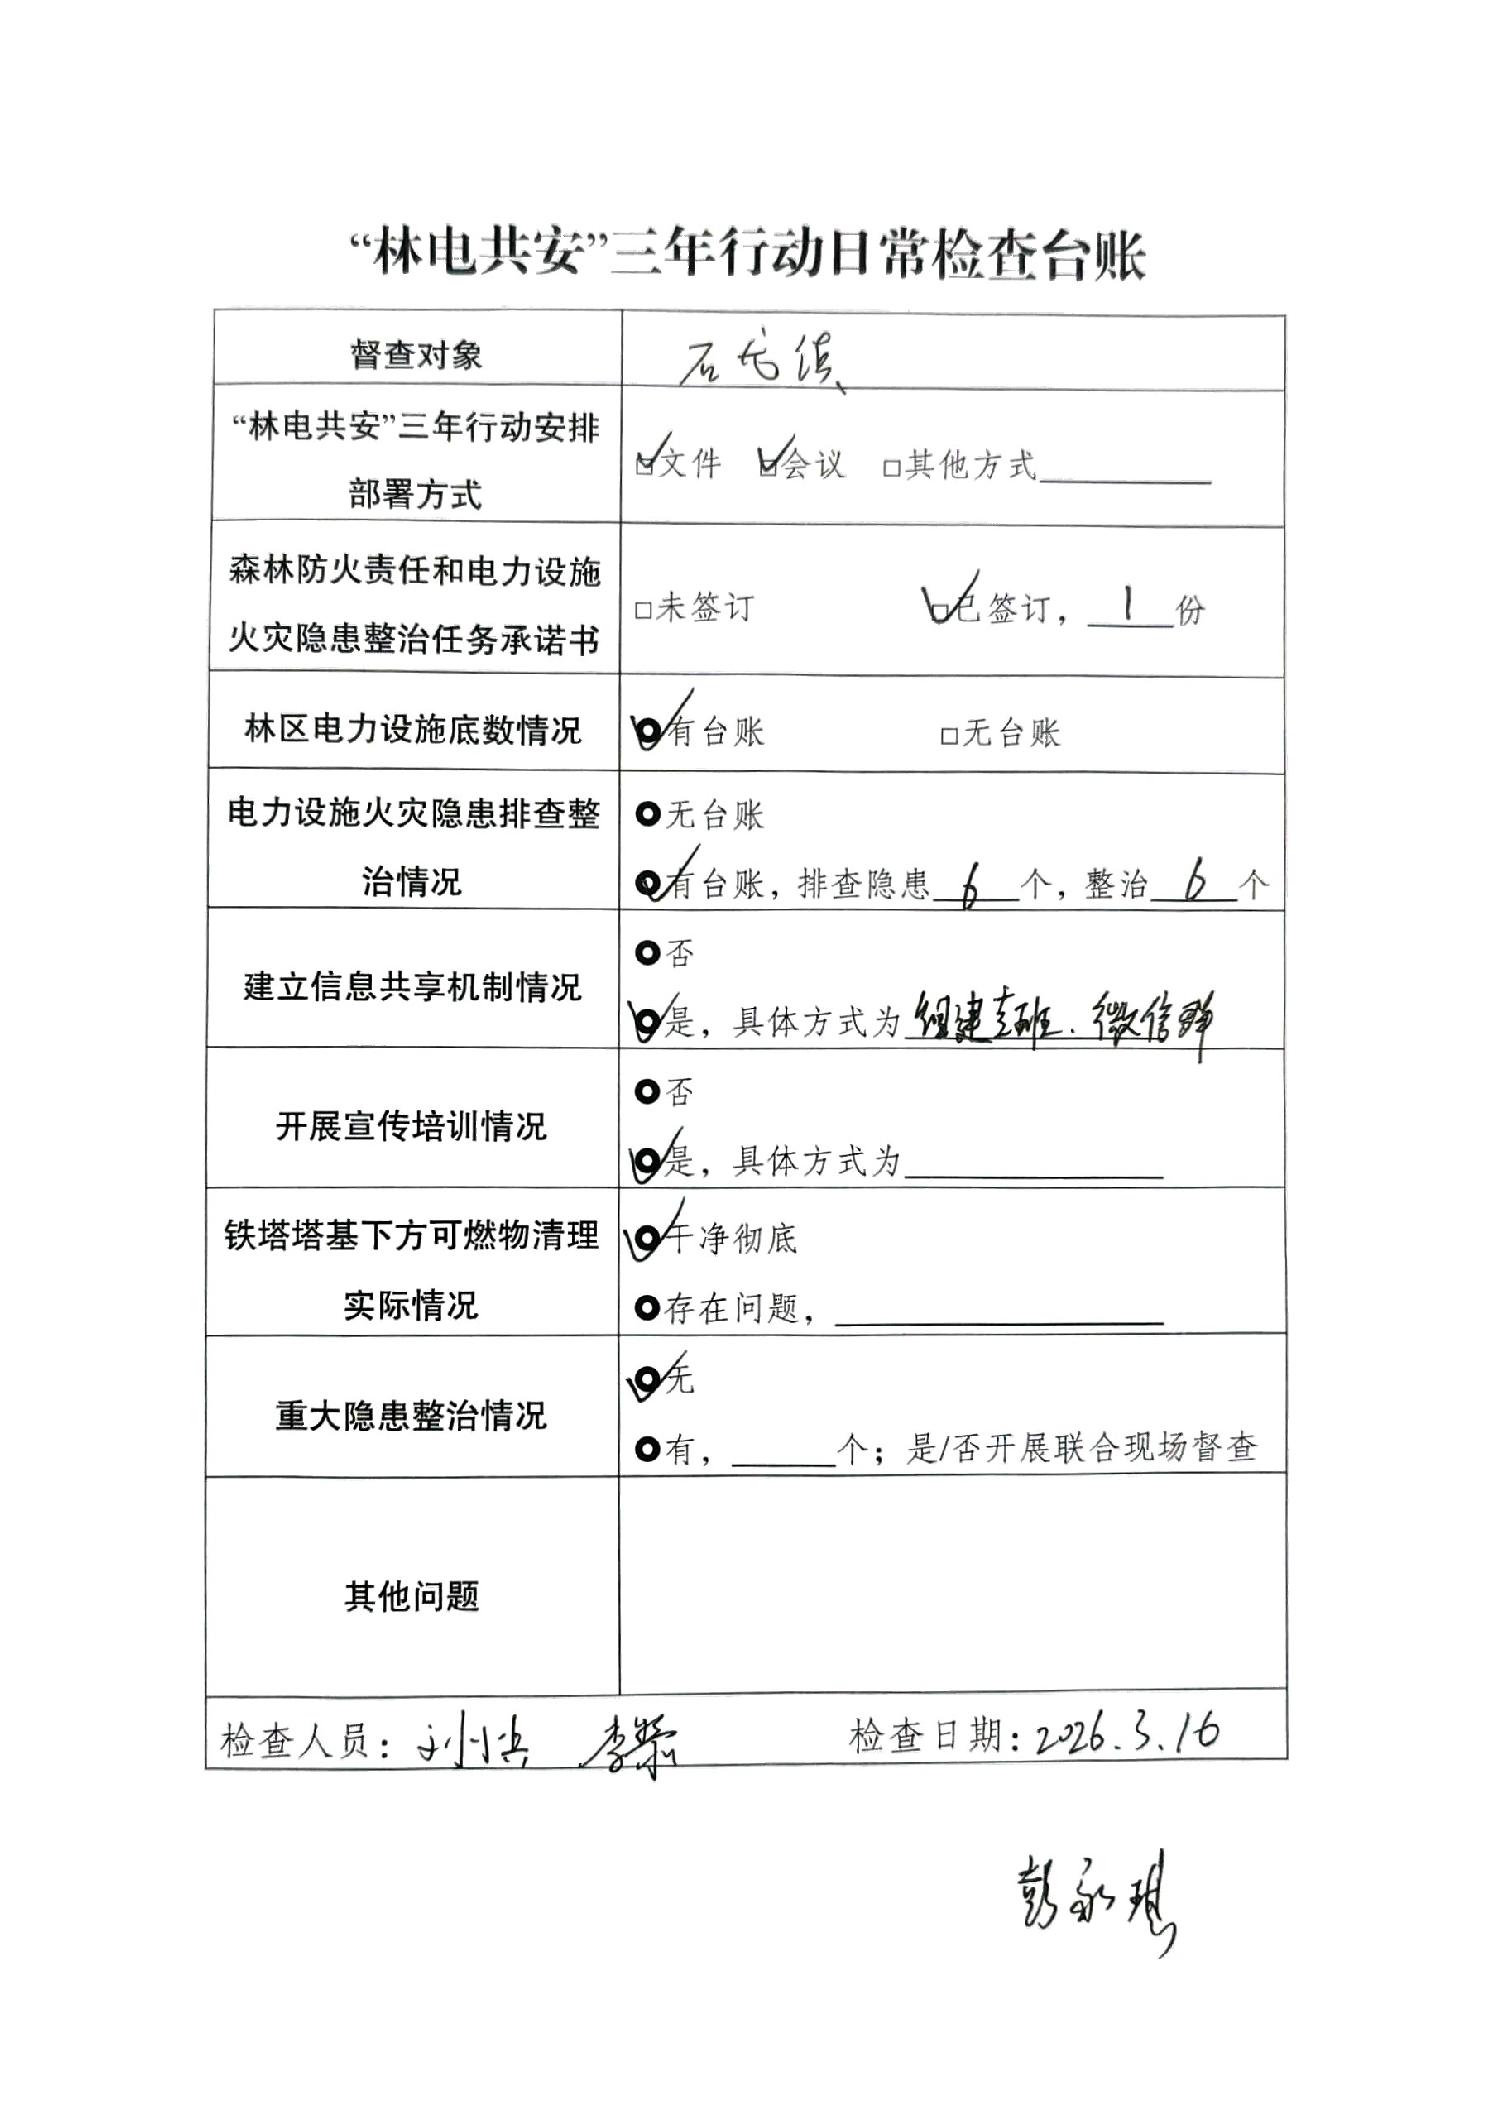 “林电共安”三年行动日常检查台账
督查对象
石 镇
“林电共安”三年行动安排
部署方式
☑文件 ☑会议 □其他方式
森林防火责任和电力设施
火灾隐患整治任务承诺书
□未签订 ☑已签订，1份
林区电力设施底数情况
有台账 □无台账
电力设施火灾隐患排查整
治情况
无台账
有台账，排查隐患6个，整治6个
建立信息共享机制情况
否
是，具体方式为组建专班、微信群
开展宣传培训情况
否
是，具体方式为
铁塔塔基下方可燃物清理
实际情况
干净彻底
存在问题，
重大隐患整治情况
无
有，个；是/否开展联合现场督查
其他问题
检查人员：刘 李 检查日期：2026.3.16
彭永琪